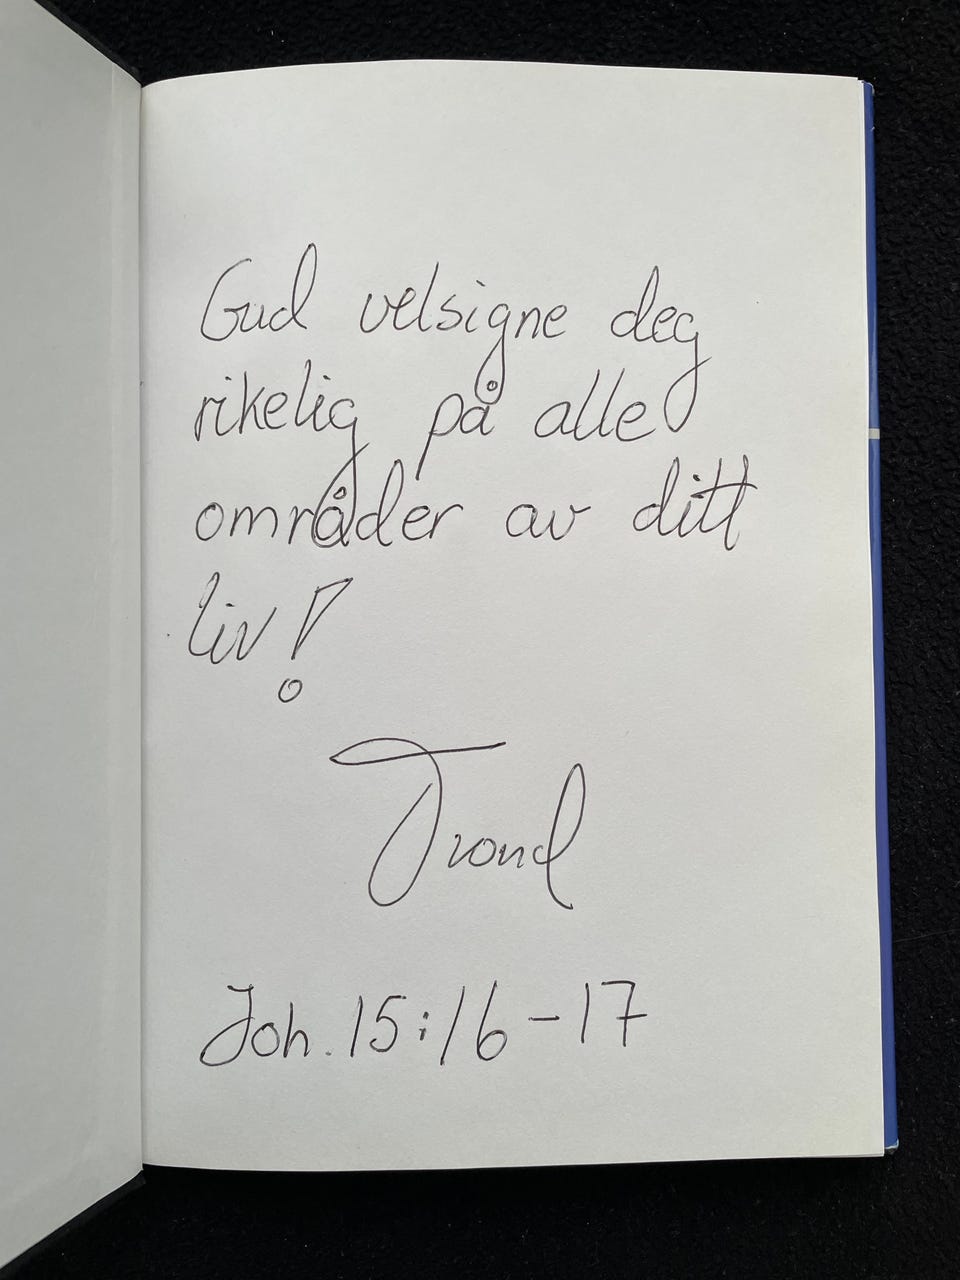 Gud velsigne deg
rikelig på alle
områder av ditt
liv!
Trond
Joh. 15:16-17